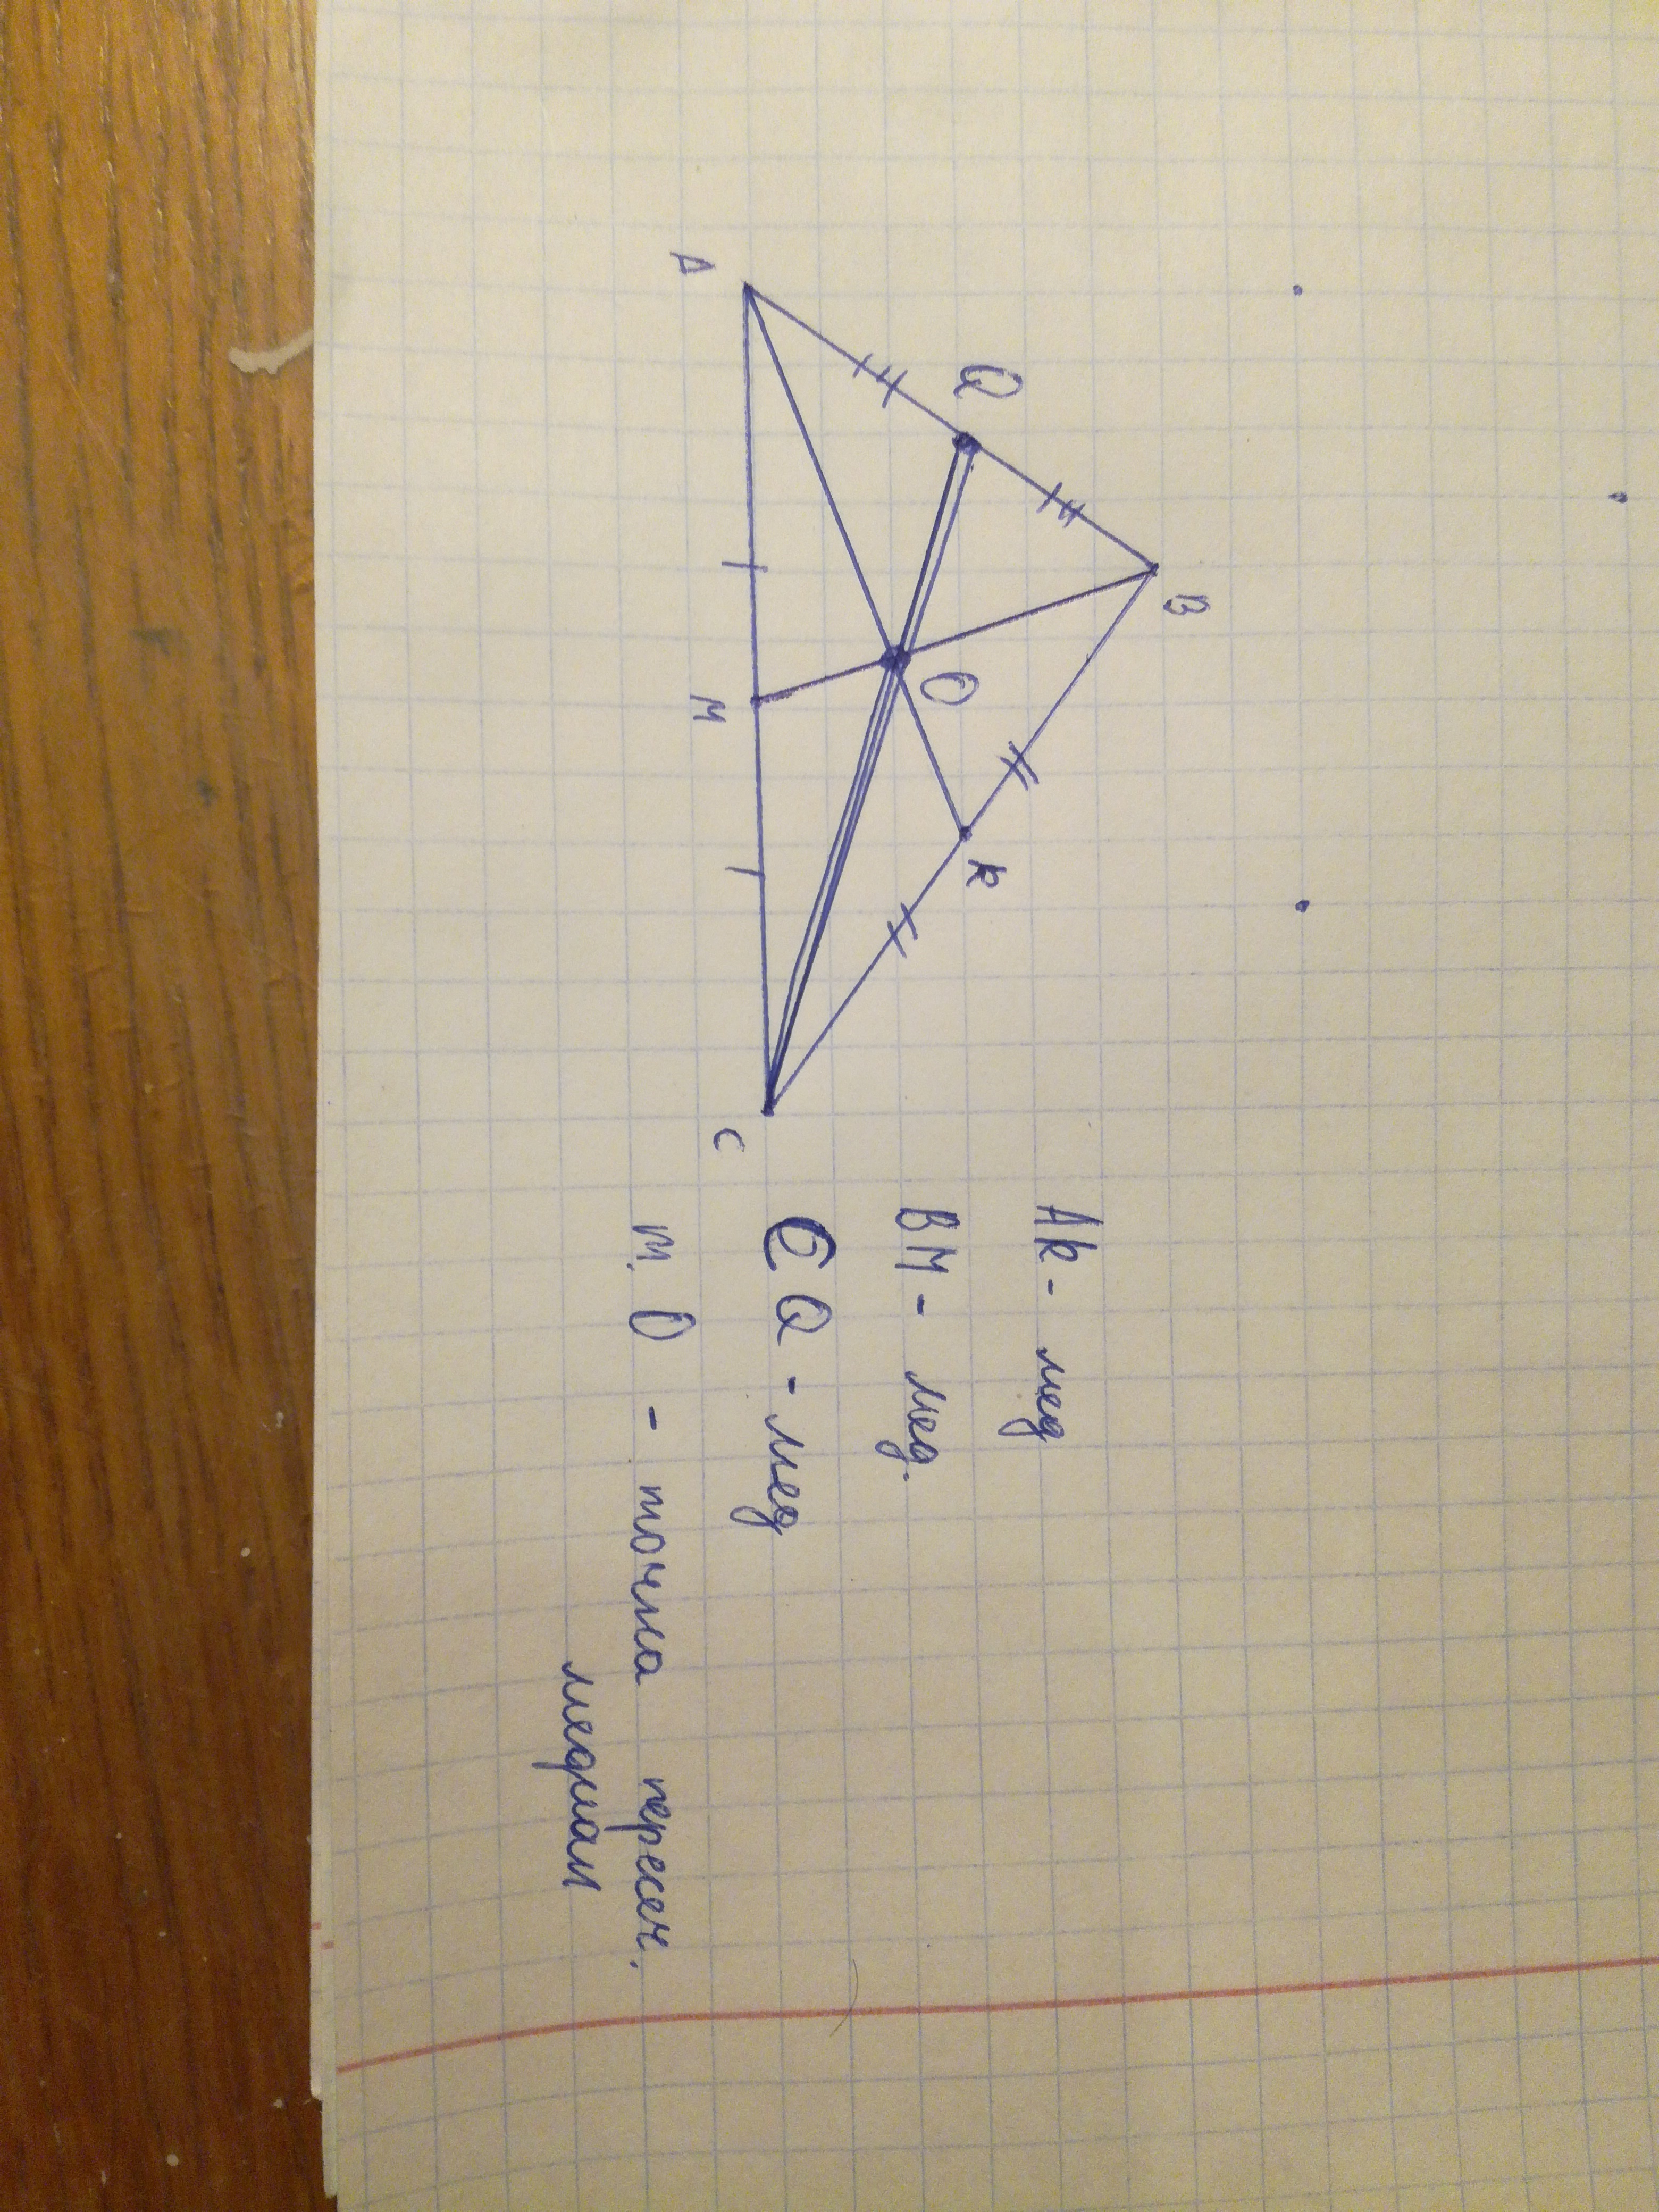 B
Q
O
K
A
M
C
AK - мед
BM - мед.
CQ - мед
т. O - точка пересеч.
медиан